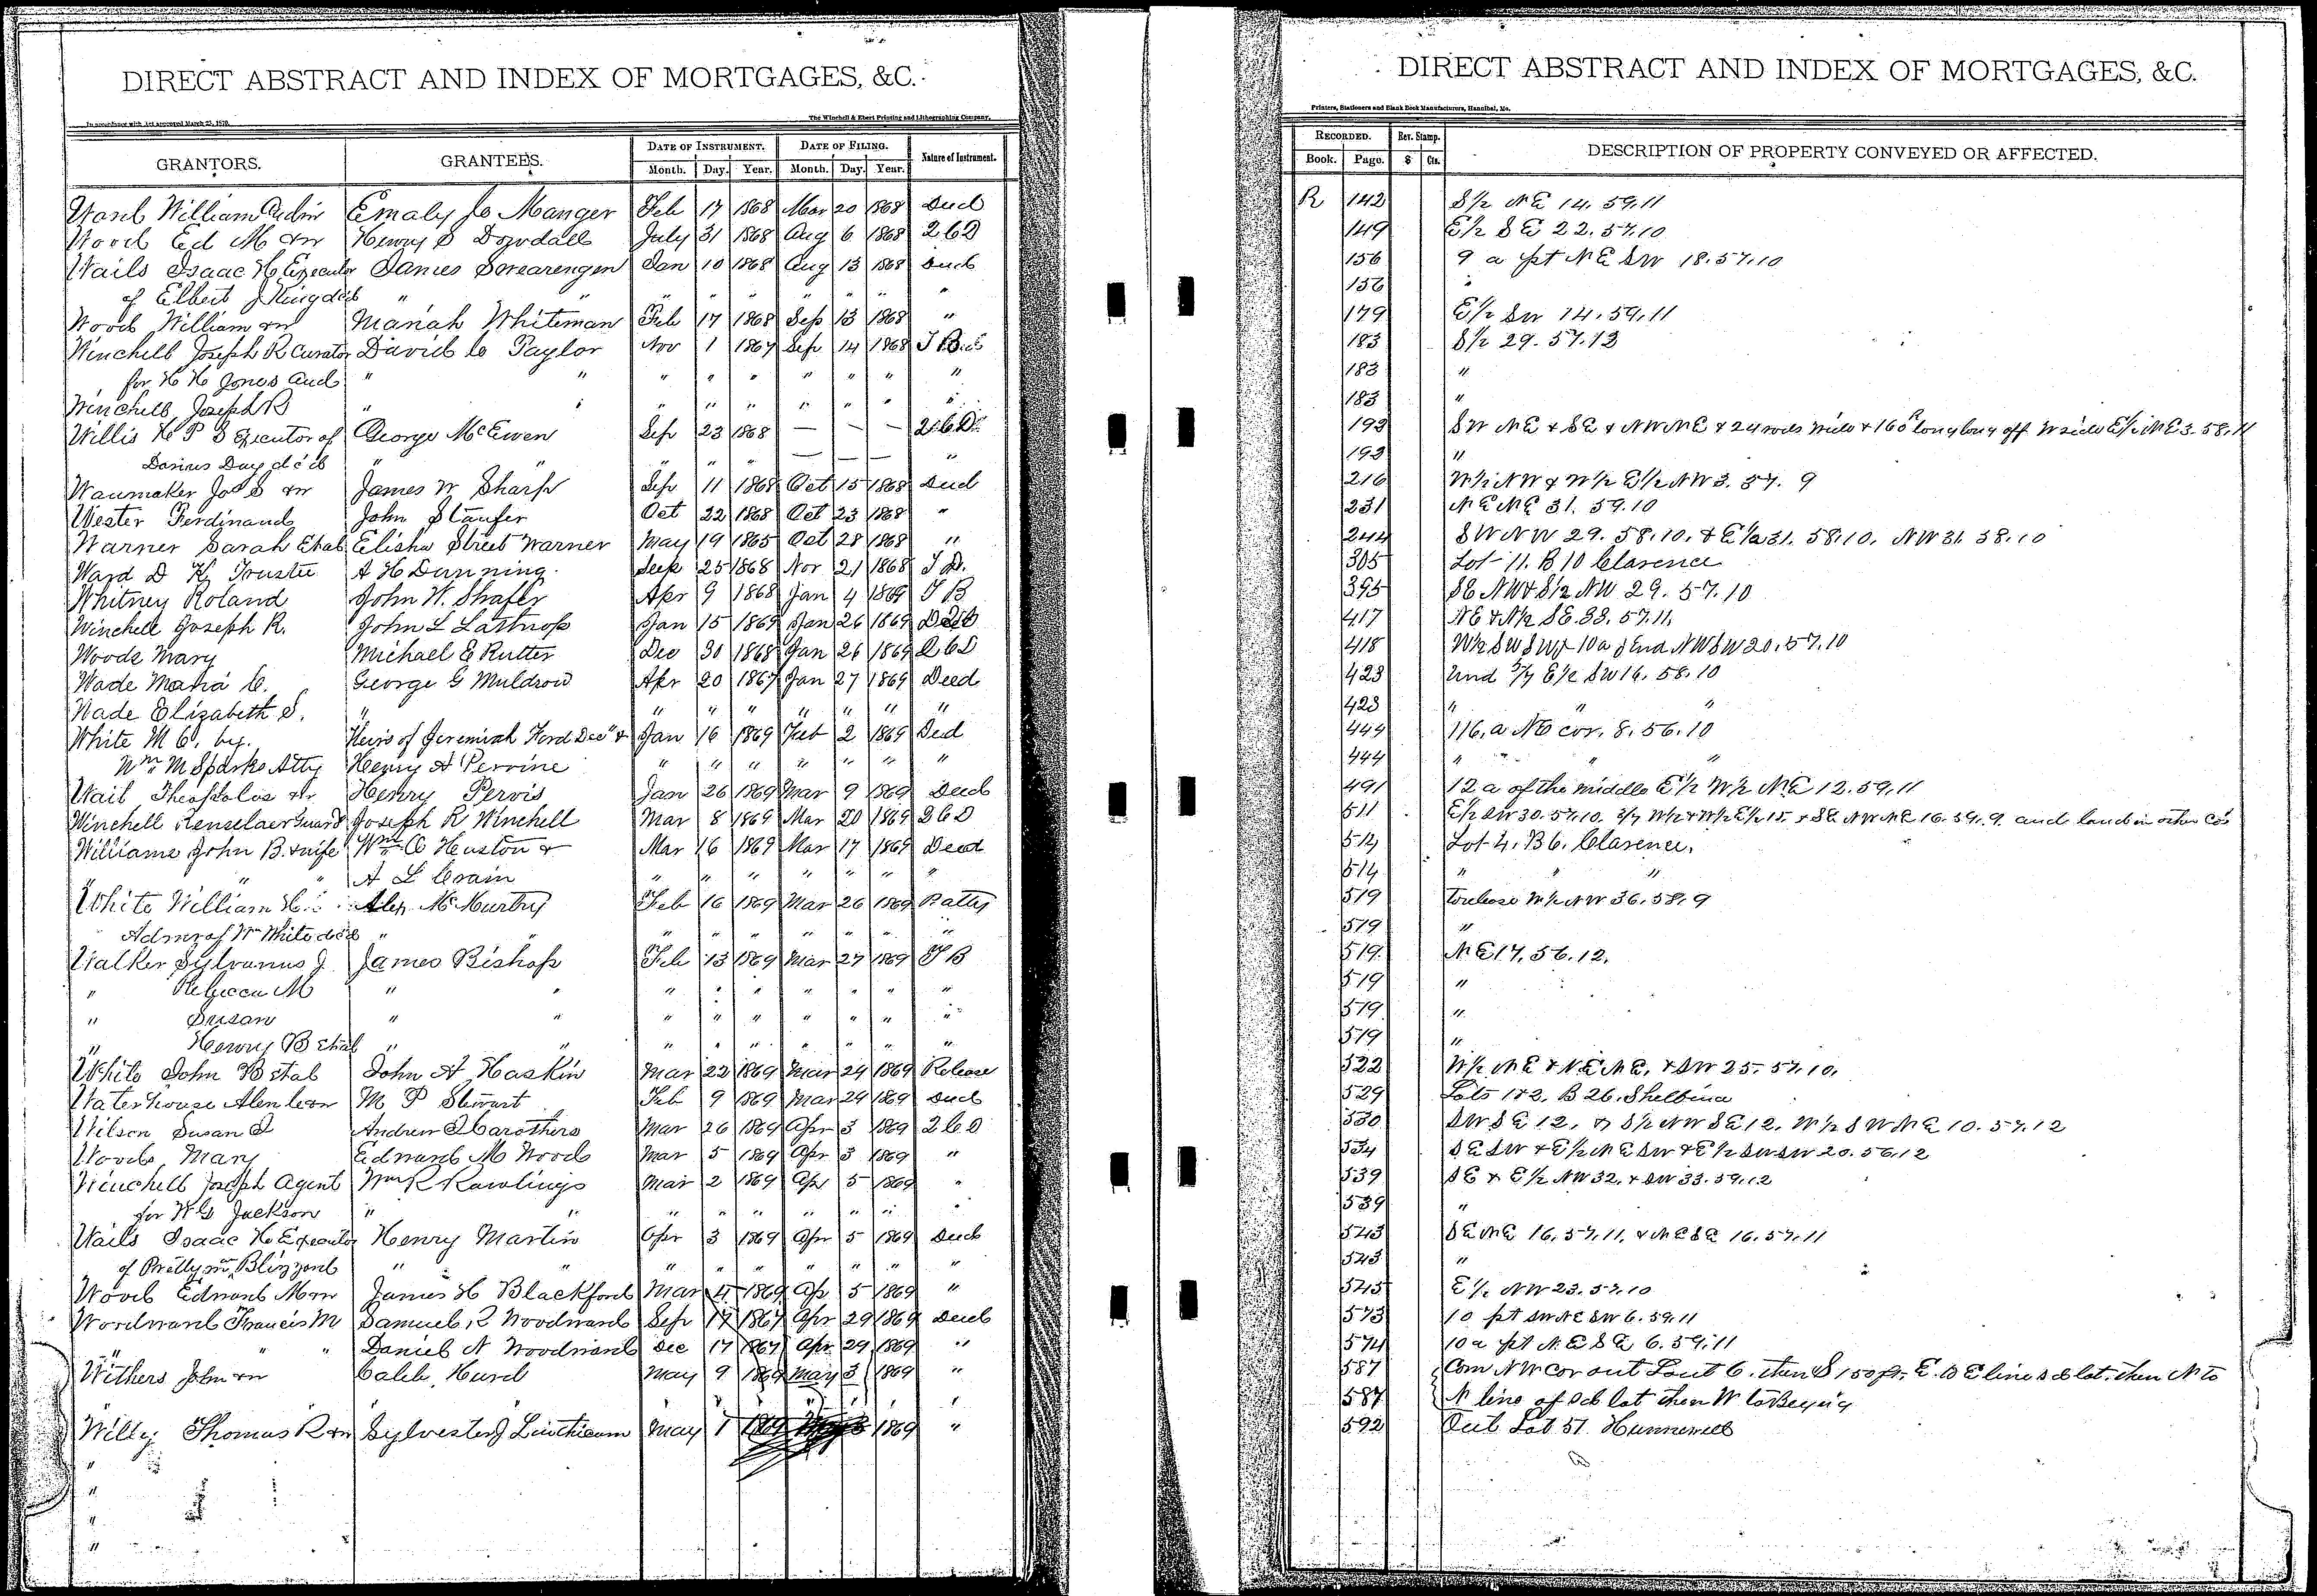 DIRECT ABSTRACT AND INDEX OF MORTGAGES, &C.
In accordance with Act approved March 25, 1870. The Winchell & Ebert Printing and Lithographing Company,
GRANTORS. GRANTEES. DATE OF INSTRUMENT. DATE OF FILING. Nature of Instrument.
Month. Day. Year. Month. Day. Year.
William Emaly Manger Feb 17 1868 Mar 20 1868
Wood Ed M Henry S Dowdall July 31 1868 Aug 6 1868
Wails Isaac H Executor James Jan 10 1868 Aug 13 1868
of Elbert J King " " " " " " " " "
Wood William Mariah Whiteman Feb 17 1868 Sep 13 1868 "
Winchell Joseph R Curator David Taylor Nov 1 1867 Sep 14 1868
for H H Jones and " " " " " " " " "
Winchell Joseph R " " " " " " " " "
Willis H P S Executor of George McEwen Sep 23 1868 — — —
Darius Day " " " " — — — "
James W Sharp Sep 11 1868 Oct 15 1868
Wester Ferdinand John Staufer Oct 22 1868 Oct 23 1868 "
Warner Sarah Etal Elisha Street Warner May 19 1865 Oct 28 1868 "
Ward D H Trustee A H Dunning 25 1868 Nov 21 1868 T D.
Whitney Roland John W. Shafer Apr 9 1868 Jan 4 1869 T B
Winchell Joseph R. John L Jan 15 1869 Jan 26 1869
Woods Mary Michael E Rutter Dec 30 1868 Jan 26 1869
Wade Maria C. George G Muldrow Apr 20 1867 Jan 27 1869 Deed
Wade Elizabeth S. " " " " " " " "
White M C. by. Heirs of Jeremiah Ford & Jan 16 1869 Feb 2 1869 Deed
Wm M Sparks Atty Henry A Perrine " " " " " " "
Henry Pervis Jan 26 1869 Mar 9 1869 Deed
Winchell Renselaer Guard Joseph R Winchell Mar 8 1869 Mar 20 1869
Williams John B. & wife Wm Huston & Mar 16 1869 Mar 17 1869 Deed
" " A L Crain " " " " " " "
White William H. Alex McMurtry Feb 16 1869 Mar 26 1869
Admr of Wm White " " " " " " " " "
Walker Sylvanus J James Bishop Feb 13 1869 Mar 27 1869 T B
" Rebecca M " " " " " " " " "
" Susan " " " " " " " " "
" Henry B Etal " " " " " " " " "
White John B Etal John A Haskin Mar 22 1869 Mar 24 1869 Release
Waterhouse M P Stewart Feb 9 1869 Mar 24 1869
Wilson Susan Andrew Carothers Mar 26 1869 Apr 3 1869
Woods Mary Edward M Wood Mar 5 1869 Apr 3 1869 "
Winchell Joseph Agent Wm R Rawlings Mar 2 1869 Apr 5 1869 "
for W G Jackson " " " " " " " " "
Wails Isaac H Executor Henry Martin Apr 3 1869 Apr 5 1869
of Blizzard " " " " " " " " "
Wood Edward M James H Blackford Mar 4 1869 Ap 5 1869 "
Woodward Francis M Samuel Woodward Sep 17 1867 Apr 29 1869
" " Daniel N Woodward Dec 17 1867 Apr 29 1869 "
Withers John Caleb Hurd May 9 1869 May 3 1869 "
Thomas R Sylvester J Linthicum May 1 1869 "
DIRECT ABSTRACT AND INDEX OF MORTGAGES, &C.
Printers, Stationers and Blank Book Manufacturers, Hannibal, Mo.
RECORDED. Rev. Stamp. DESCRIPTION OF PROPERTY CONVEYED OR AFFECTED.
Book. Page. $ Cts.
R 142 S½ NE 14. 59. 11
149 E½ SE 22. 57. 10
156 9 a pt NE SW 18. 57. 10
156 "
179 E½ SW 14. 59. 11
183 S½ 29. 57. 13
183 "
183 "
193 SW NE & SE & NW NE & 24 rods wide & 160 long off W side E½ NE 3. 58. 11
193 "
216 W½ NW & W½ E½ NW 3. 57. 9
231 NE NE 31. 59. 10
244 SW NW 29. 58. 10. & E½ 31. 58. 10. NW 31. 58. 10
305 Lot 11. B 10 Clarence
395 SE NW & S½ NW 29. 57. 10
417 NE & N½ SE. 33. 57. 11.
418 W½ SW SW & 10 a S End NW SW 20. 57. 10
423 Und E½ SW 16. 58. 10
423 " " "
444 116. a NE cor. 8. 56. 10
444 " " "
491 12 a of the middle E½ W½ NE 12. 59. 11
511 E½ SW 30. 57. 10. W½ & W½ E½ 15. & SE NW NE 16. 59. 9. and land in other Co's
514 Lot 4. B 6. Clarence.
514 " " "
519 W½ NW 36. 58. 9
519 "
519 NE 17. 56. 12.
519 "
519 "
519 "
522 W½ NE & NE NE. & SW 25. 57. 10.
529 Lots 1 & 2. B 26. Shelbina
530 SW SE 12. & S½ NW SE 12. W½ SW NE 10. 57. 12
534 SE SW & E½ NE SW & E½ SW SW 20. 56. 12
539 SE & E½ NW 32. & SW 33. 59. 12
539 "
543 SE NE 16. 57. 11. & NE SE 16. 57. 11
543 "
545 E½ NW 23. 57. 10
573 10 pt SW NE SW 6. 59. 11
574 10 a pt NE SE 6. 59. 11
587 Com NW Cor out Lot 6. then S 150 ft. E. to E line sd lot. then N to
587 N line of sd lot then W to
592 Out Lot 57. Hunnewell